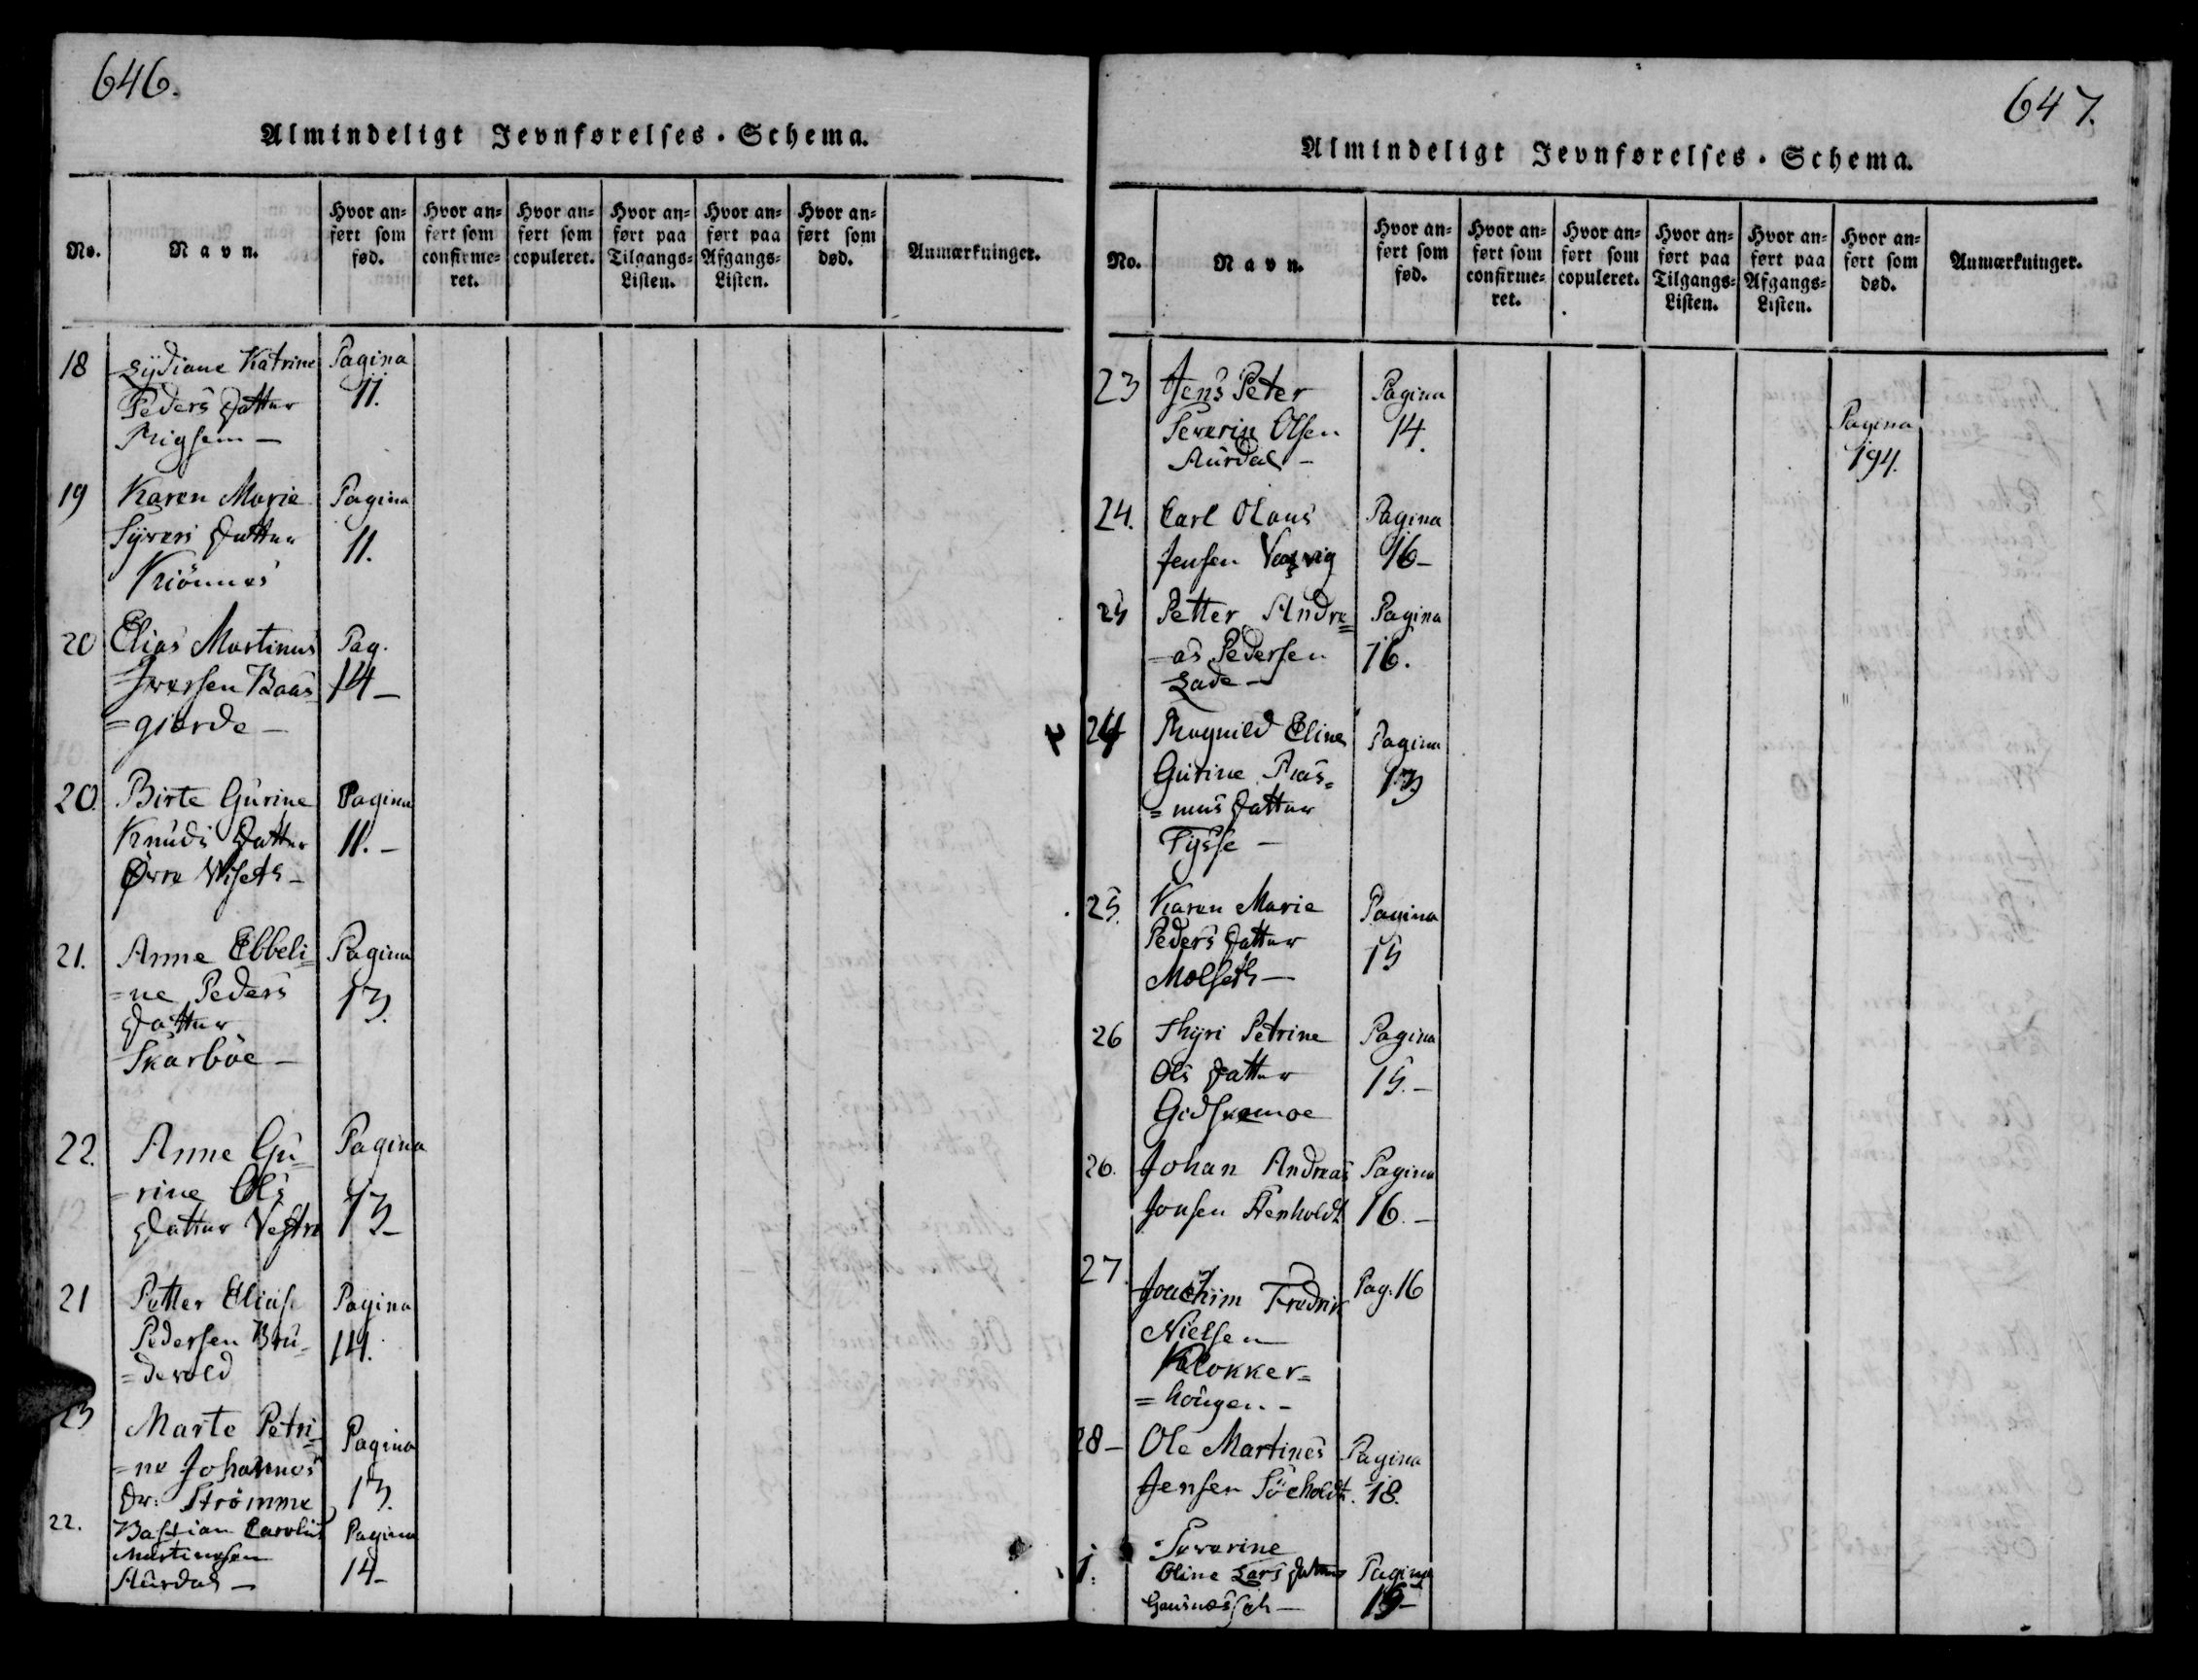 646.
Almindeligt Jevnførelses-Schema.
No.
Navn.
Hvor anført som fød.
Hvor anført som confirmeret.
Hvor anført som copuleret.
Hvor anført paa Tilgangs-Listen.
Hvor anført paa Afgangs-Listen.
Hvor anført som død.
Anmærkninger.
18 Lydiane Katrine Pagina
Peders Datter 11.
19 Karen Marie Pagina
Syvers Datter 11.
20 Elias Martinus Pag.
Iversen Baas= 14 –
=giærde –
20. Birte Gurine Pagina
Knuds Datter 11. –
Øvre Viseth –
21. Anne Ebbeli= Pagina
=ne Peders 13.
Datter
Skarbøe –
22. Anne Gu= Pagina
=rine Ols 13 –
Datter Vestre
21 Petter Elias Pagina
Pedersen Bru= 14.
=devold
23 Marte Petri= Pagina
=ne Johannes
Dr: Strømme 13.
22. Bastian Carolus Pagina
Martinusen
Aurdal – 14 –
647.
Almindeligt Jevnførelses-Schema.
No.
Navn.
Hvor anført som fød.
Hvor anført som confirmeret.
Hvor anført som copuleret.
Hvor anført paa Tilgangs-Listen.
Hvor anført paa Afgangs-Listen.
Hvor anført som død.
Anmærkninger.
23 Jens Peter Pagina
Severin Olsen 14. Pagina
Aurdal – 194.
24. Carl Olaus Pagina
Jensen 16 –
25 Petter Andre= Pagina
=as Pedersen 16.
Lade –
24 Ragnild Eline Pagina
Gurine Ras= 13
=mus Datter
Tysse –
25. Karen Marie Pagina
Peders Datter 15
Molseth –
26 Thyri Petrine Pagina
Ols Datter 15. –
Gidskemoe
26. Johan Andreas Pagina
Jonsen Stenholdt 16. –
27. Joachim Fredrik Pag. 16
Nielsen
Klokker=
=hougen. –
28 – Ole Martinus Pagina
Jensen Söeholdt. 18.
1. Severine
Oline Lars Datter Pagina
15 –